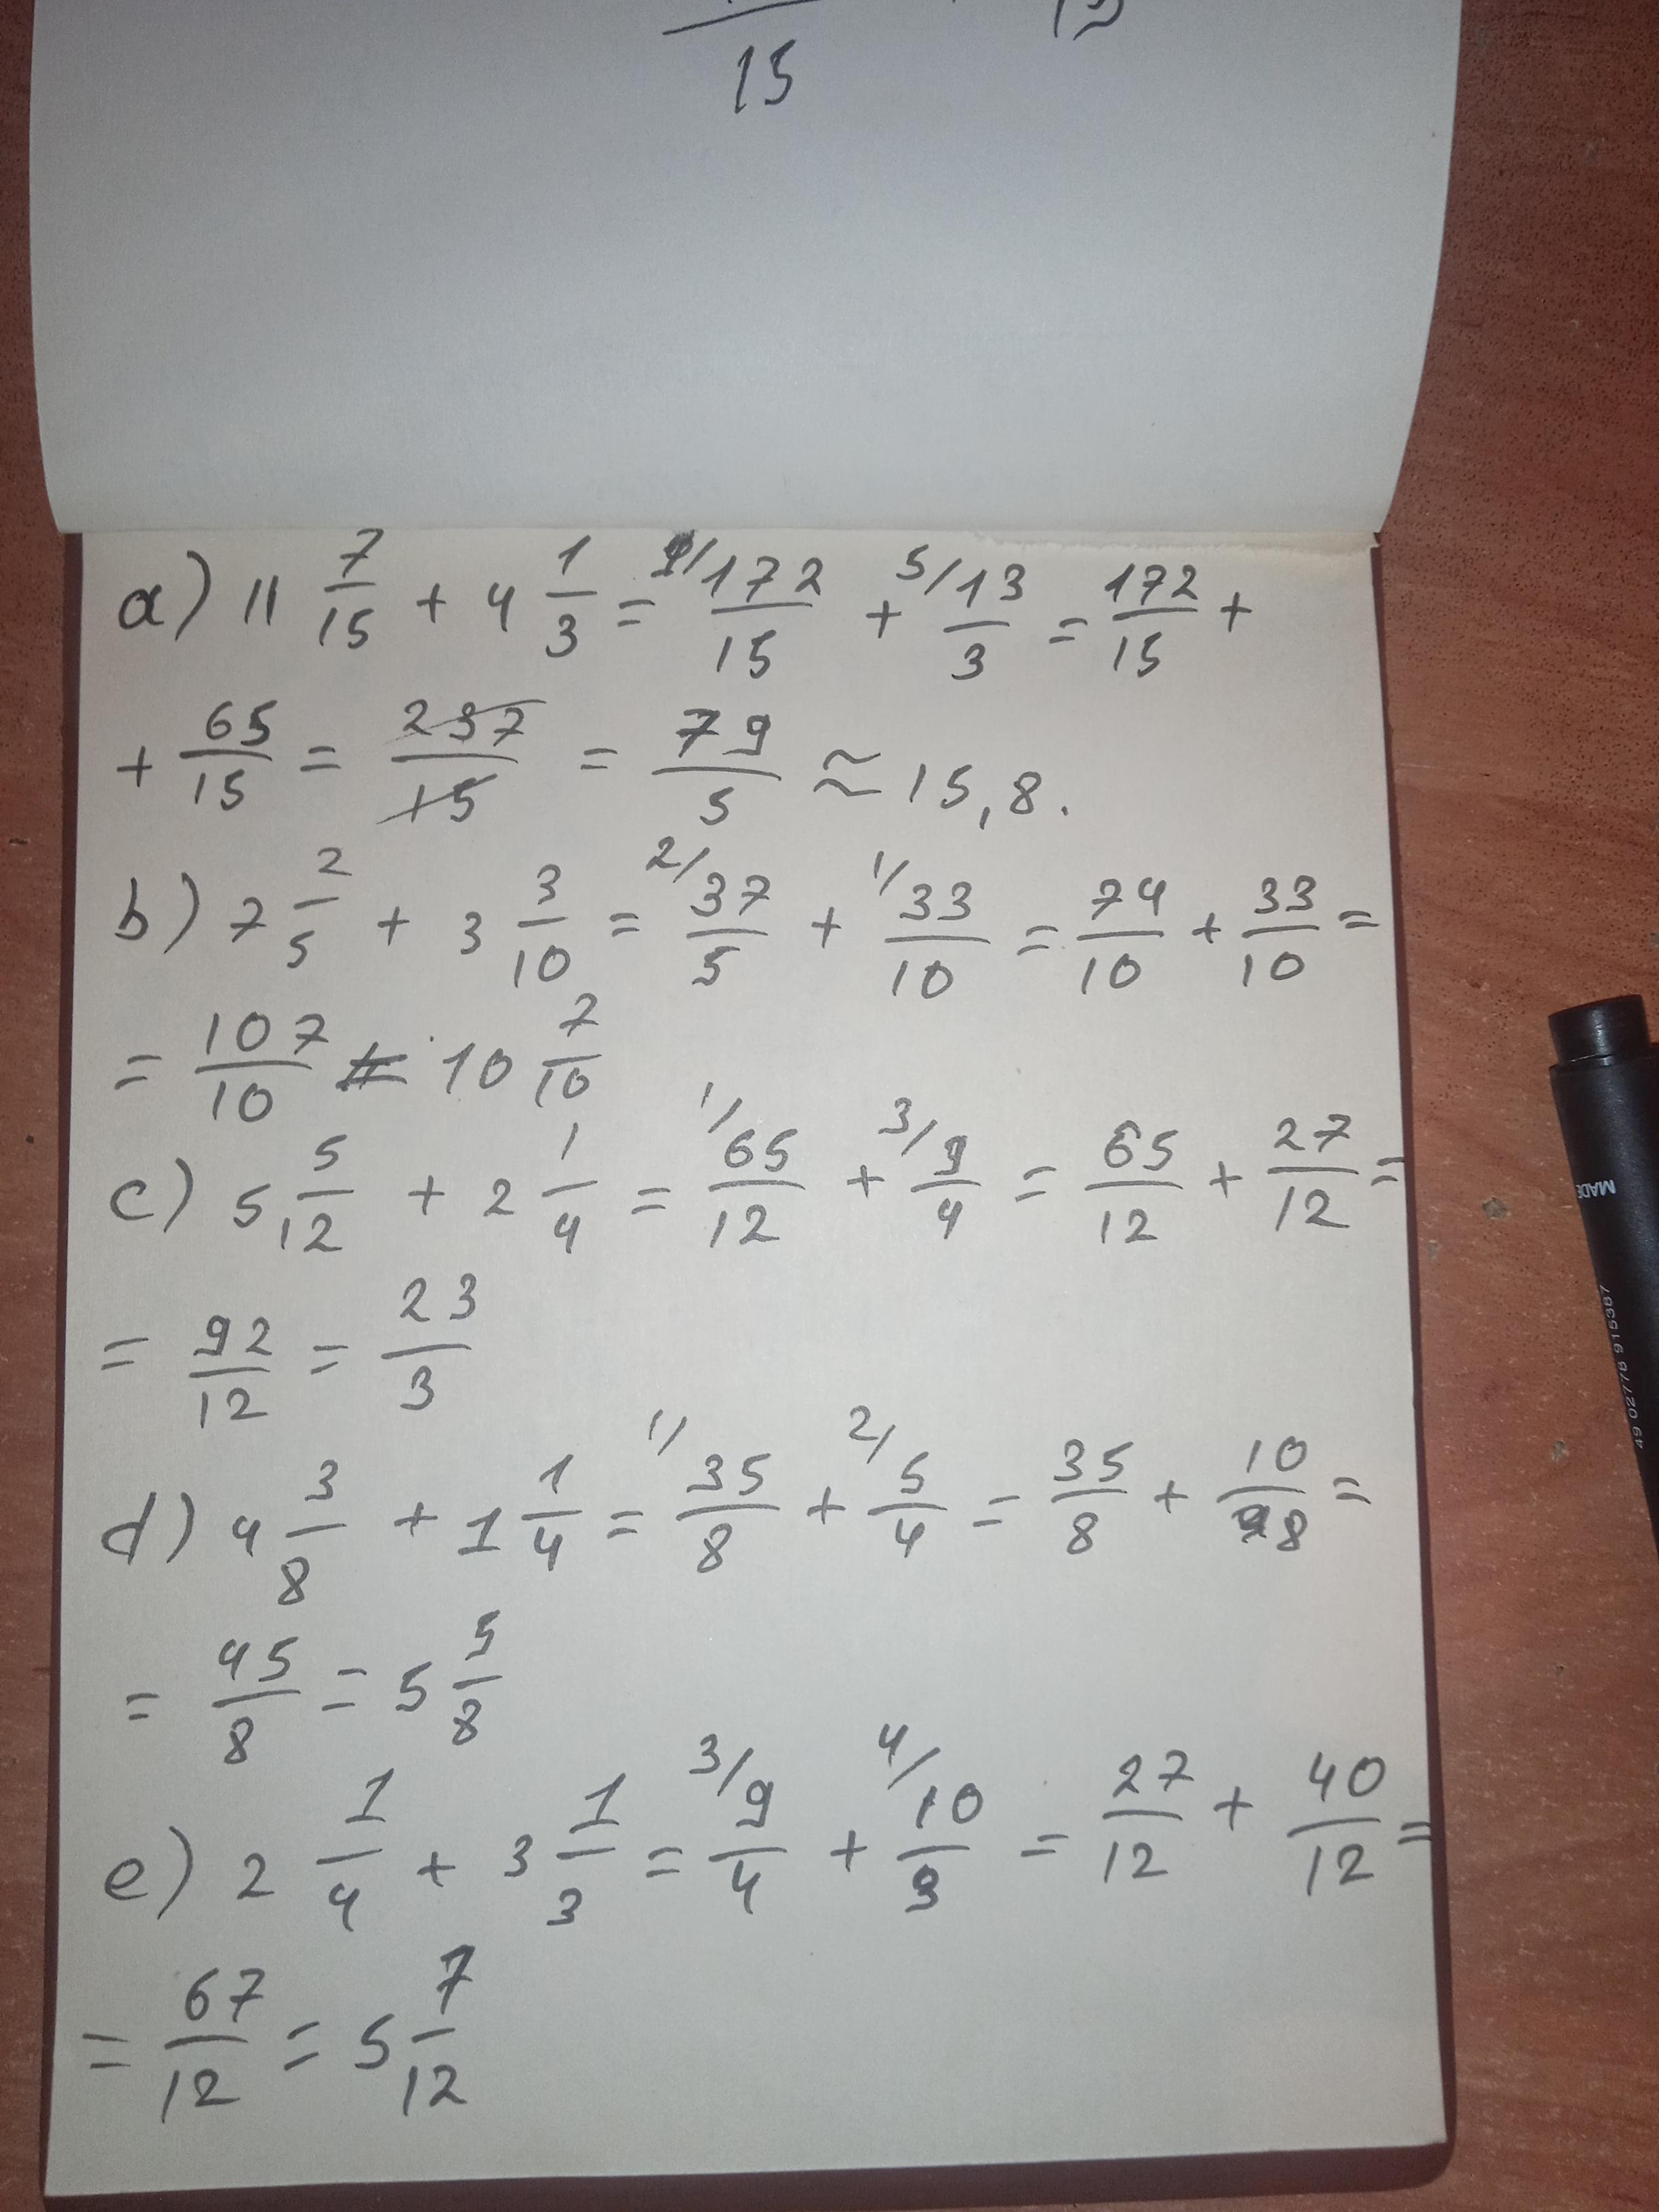 15
a) 11 7/15 + 4 1/3 = 1/ 172/15 + 5/ 13/3 = 172/15 +
+ 65/15 = 237/15 = 79/5 ≈ 15,8.
b) 7 2/5 + 3 3/10 = 2/ 37/5 + 1/ 33/10 = 74/10 + 33/10 =
= 107/10 = 10 7/10
c) 5 5/12 + 2 1/4 = 1/ 65/12 + 3/ 9/4 = 65/12 + 27/12 =
= 92/12 = 23/3
d) 4 3/8 + 1 1/4 = 1/ 35/8 + 2/ 5/4 = 35/8 + 10/8 =
= 45/8 = 5 5/8
e) 2 1/4 + 3 1/3 = 3/ 9/4 + 4/ 10/3 = 27/12 + 40/12 =
= 67/12 = 5 7/12
MADE
49 02778 915387